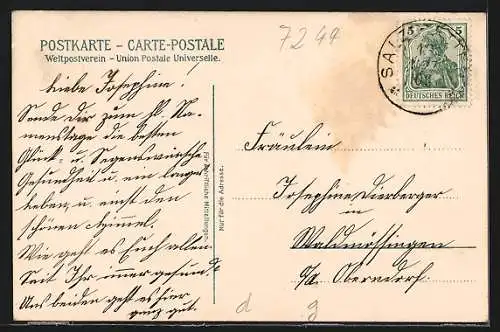 7244
POSTKARTE – CARTE-POSTALE
Weltpostverein – Union Postale Universelle.
5 5
SALZ
DEUTSCHES REICH
Liebe Josephine!
Sende dir zum hl. Na-
menstage die besten
Glück- u. Segenswünsche
Gesundheit u. ein langes
Leben, u. einst den
schönen Himmel.
Wie geht es Euch allen
Seid Ihr immer gesund?
Uns beiden geht es hier
ganz gut.
Für schriftliche Mitteilungen.
Nur für die Adresse.
Fräulein
Josephine Dierberger
in
Waldmössingen
O/A. Oberndorf.
d g